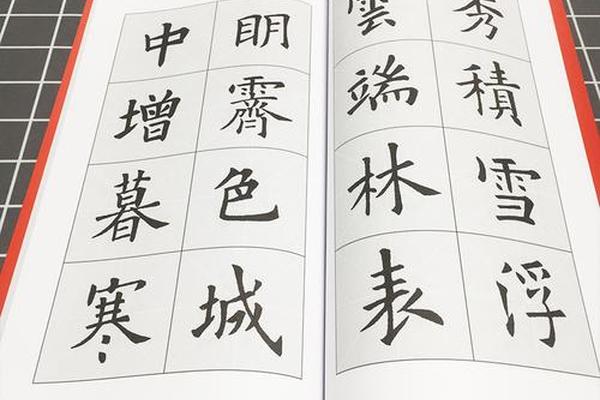 秀積雪浮
雲端林表
明霽色城
中增暮寒